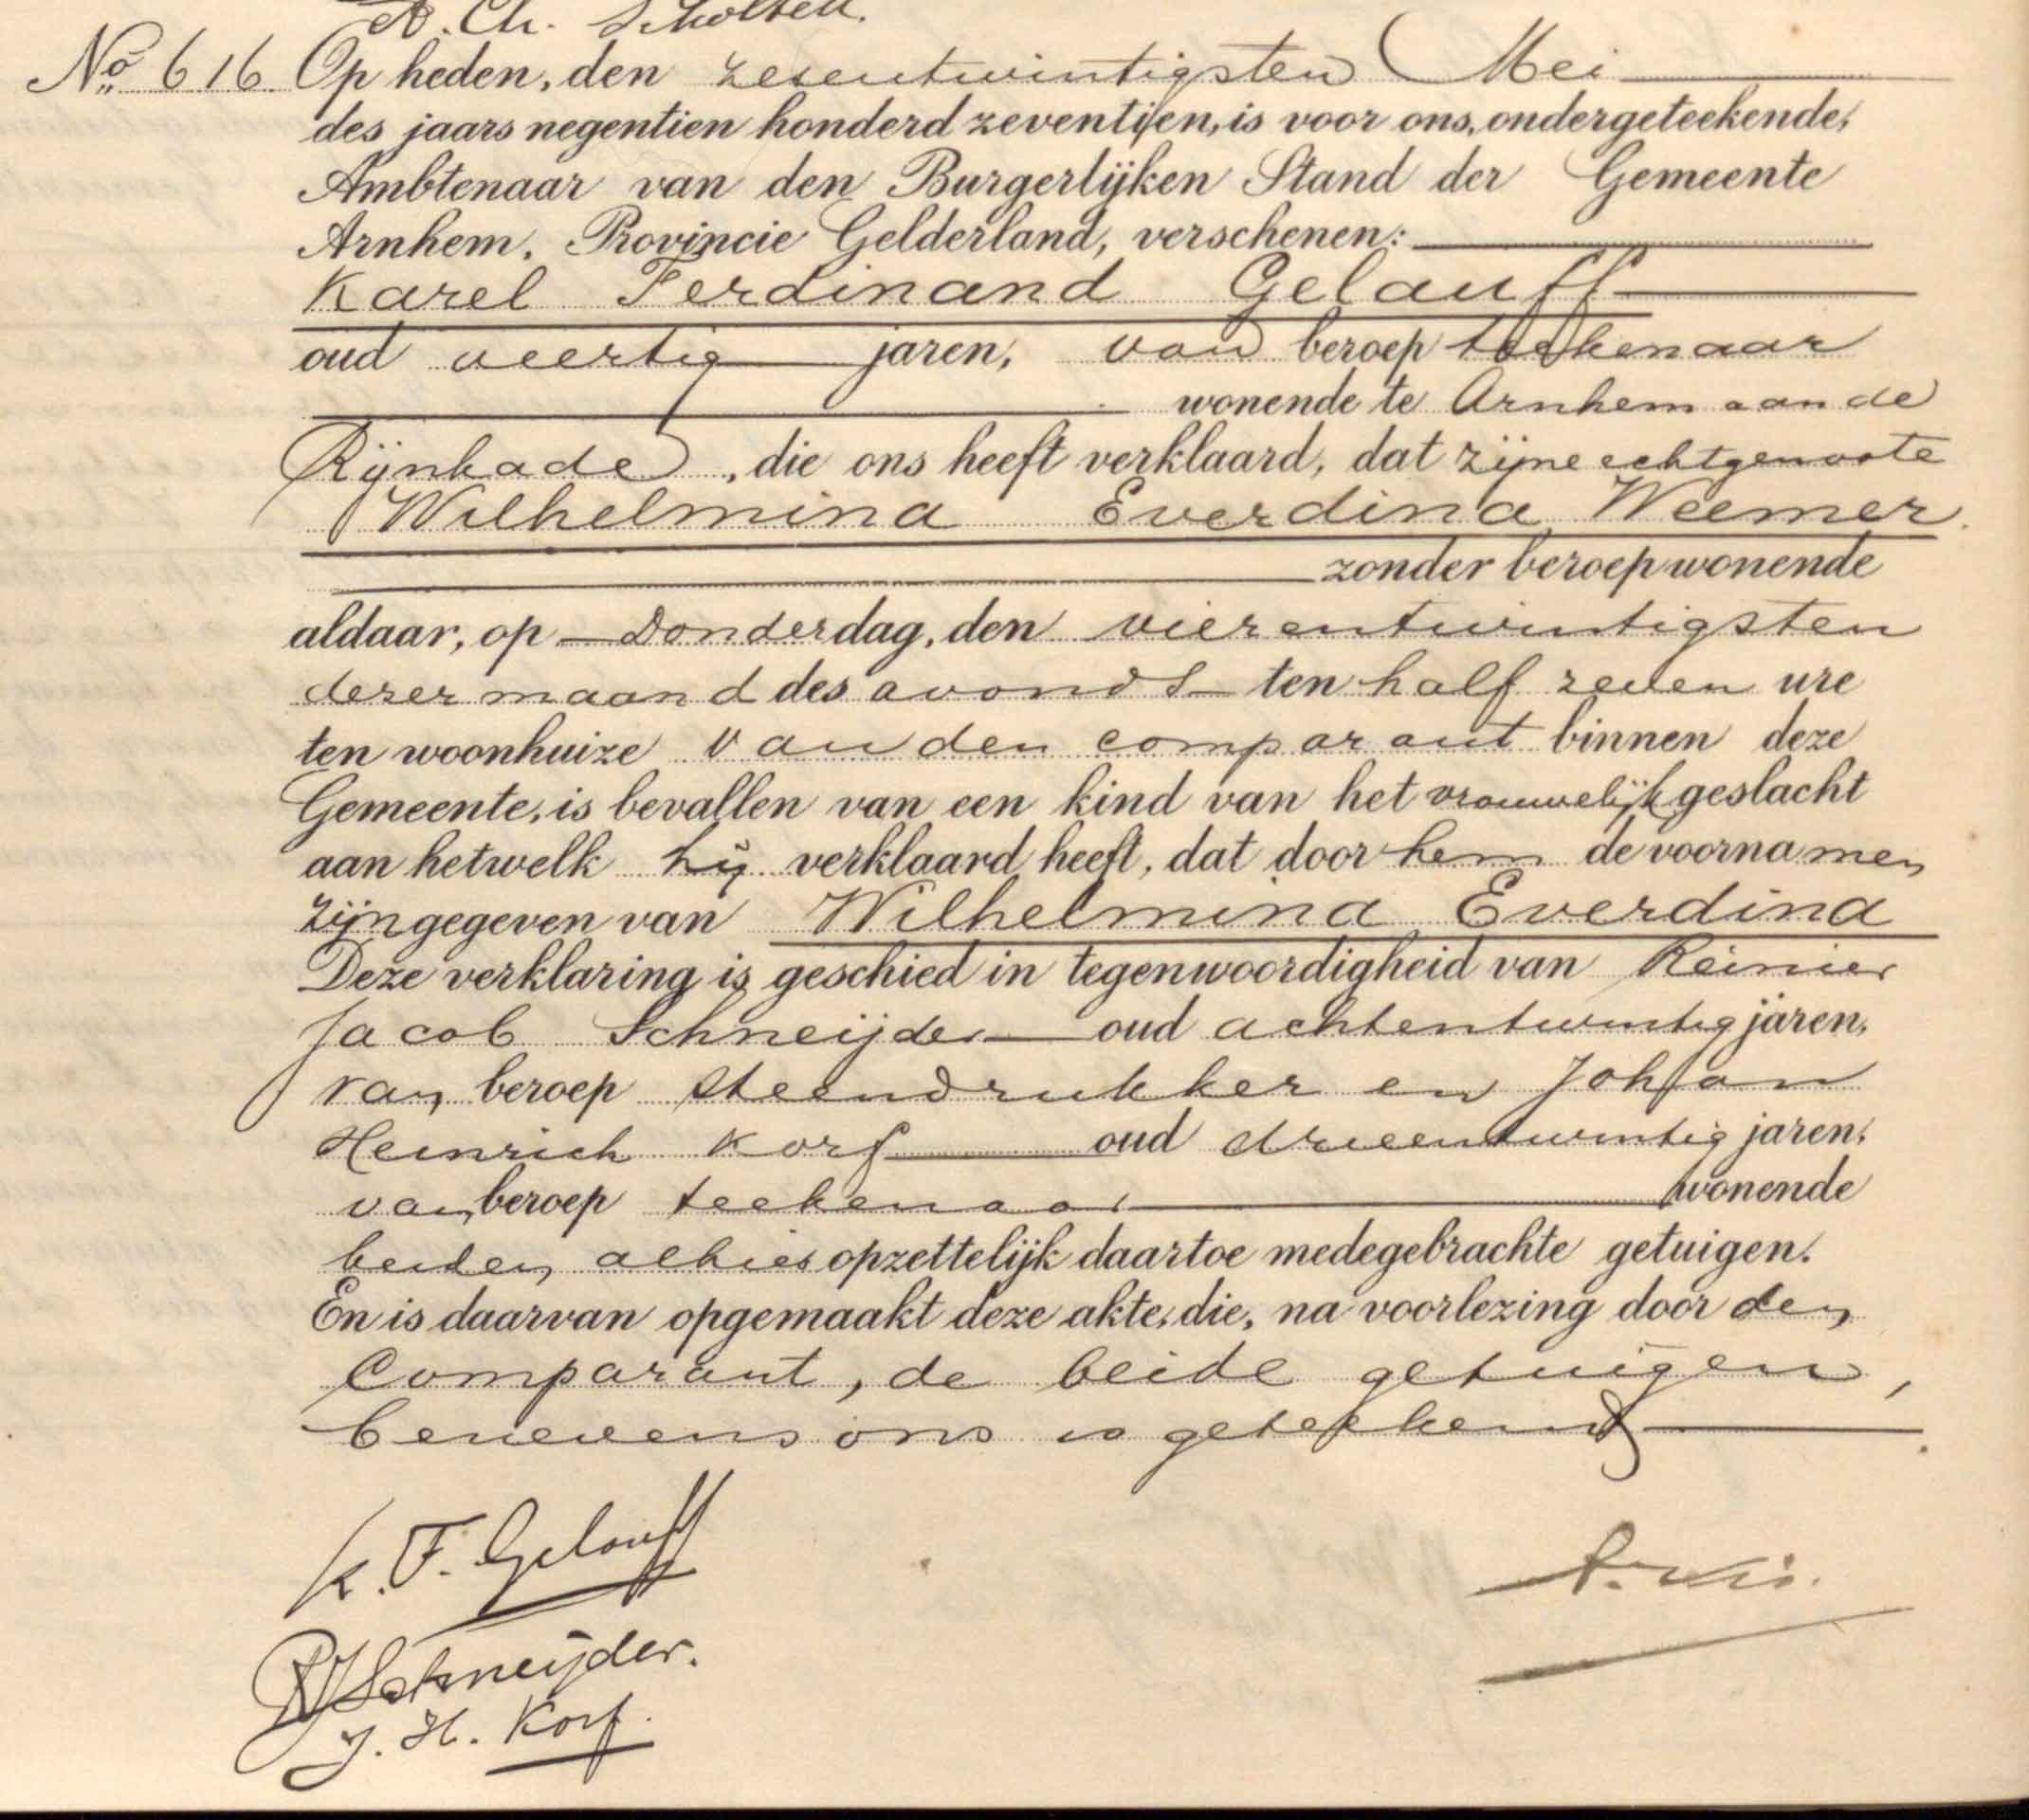 A. Ch. Scholten.
No. 616. Op heden, den zesentwintigsten Mei
des jaars negentien honderd zeventien, is voor ons, ondergeteekende,
Ambtenaar van den Burgerlijken Stand der Gemeente
Arnhem, Provincie Gelderland, verschenen:
Karel Ferdinand Gelauff
oud veertig jaren, van beroep teekenaar
wonende te Arnhem aan de
Rijnkade, die ons heeft verklaard, dat zijne echtgenoote
Wilhelmina Everdina Weemer.
zonder beroep wonende
aldaar, op Donderdag, den vierentwintigsten
dezer maand des avonds ten half zeven ure
ten woonhuize van den comparant binnen deze
Gemeente, is bevallen van een kind van het vrouwelijk geslacht
aan hetwelk hij verklaard heeft, dat door hem de voornamen
zijn gegeven van Wilhelmina Everdina
Deze verklaring is geschied in tegenwoordigheid van Reinier
Jacob Schneijder oud achtentwintig jaren,
van beroep steendrukker en Johan
Heinrich Korf oud drieentwintig jaren,
van beroep teekenaar wonende
beiden alhier opzettelijk daartoe medegebrachte getuigen.
En is daarvan opgemaakt deze akte, die, na voorlezing door den
Comparant, de beide getuigen,
benevens ons is geteekend
K. F. Gelauff
RJSchneijder.
J. H. Korf.